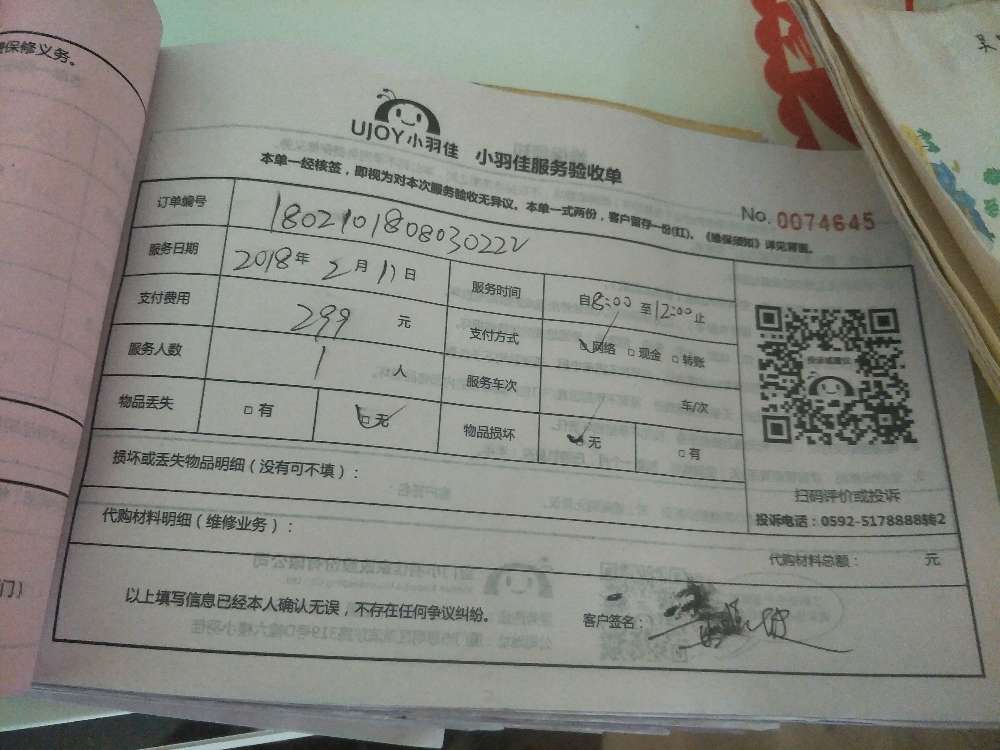 保修义务。
UJOY小羽佳 小羽佳服务验收单
本单一经核签，即视为对本次服务验收无异议。本单一式两份，客户留存一份(红)，《维保须知》详见背面。
No. 0074645
订单编号 180210180803022
服务日期 2018年2月11日 服务时间 自8:00至12:00止
支付费用 299元 支付方式 网络 □现金 □转账
服务人数 1人 服务车次 车/次
物品丢失 □有 □无 物品损坏 □无 □有
损坏或丢失物品明细（没有可不填）：
投诉或建议
扫码评价或投诉
投诉电话：0592-5178888转2
代购材料明细（维修业务）：
代购材料总额： 元
以上填写信息已经本人确认无误，不存在任何争议纠纷。 客户签名：